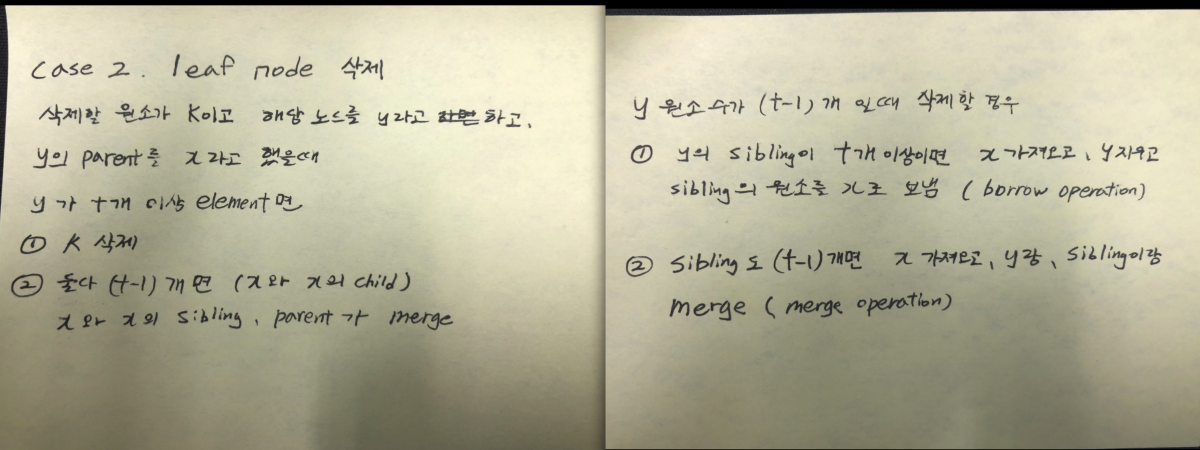 case 2. leaf node 삭제
삭제할 원소가 K이고 해당 노드를 y라고 하고,
y의 parent를 x라고 했을때
y가 t개 이상 element면
① K 삭제
② 둘다 (t-1)개면 (x와 x의 child)
x와 x의 sibling, parent가 merge
y 원소 수가 (t-1)개 일때 삭제할 경우
① y의 sibling이 t개 이상이면 x 가져오고, y지우고
sibling의 원소를 x로 보냄 (borrow operation)
② sibling도 (t-1)개면 x 가져오고, y랑, sibling이랑
merge (merge operation)